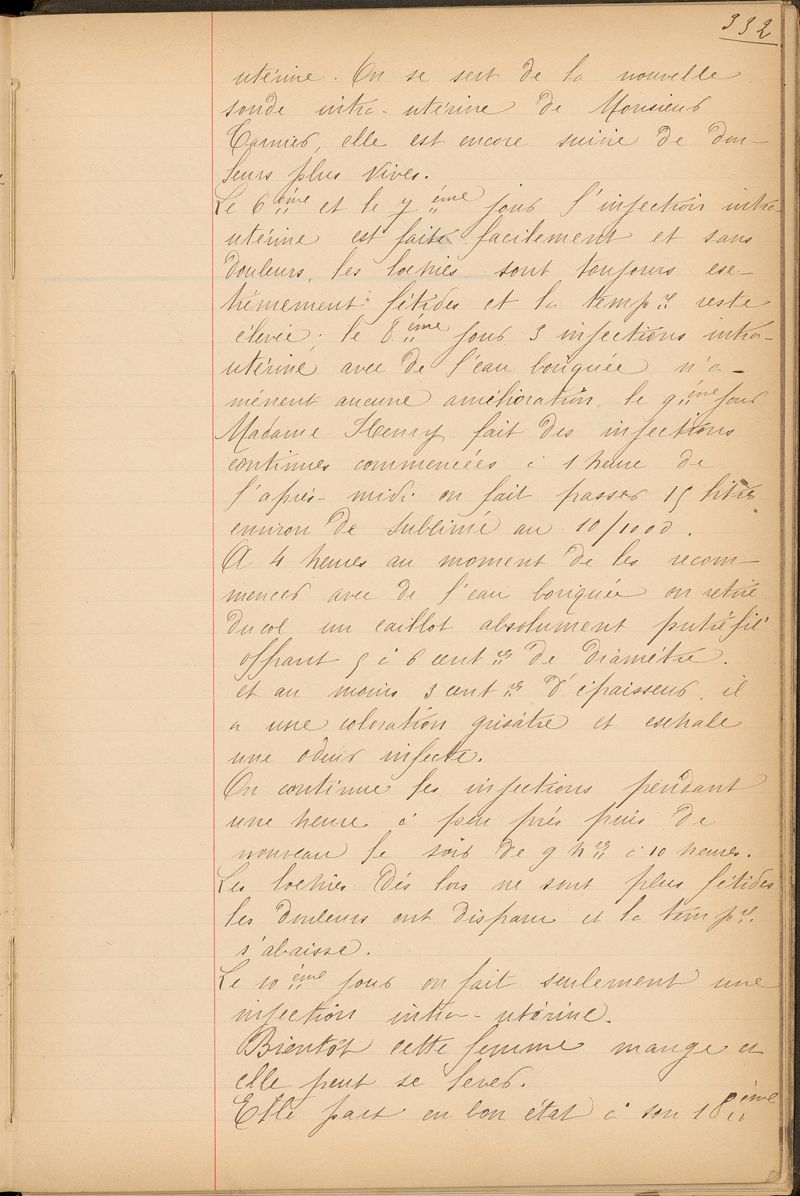 332
utérine. On se sert de la nouvelle
sonde intra-utérine de Monsieur
Tarnier, elle est encore suivie de dou-
leurs plus vives.
Le 6ème et le 7ème jour l'injection intra-
utérine est faite facilement et sans
douleurs, les lochies sont toujours ex-
trêmement fétides et la tempre reste
élevée; le 8ème jour 3 injections intra-
utérine avec de l'eau boriquée n'a-
mènent aucune amélioration. le 9ème jour
Madame Henry fait des injections
continues commencées à 1 heure de
l'après-midi on fait passer 15 litres
environ de sublimé au 10/1000.
A 4 heures au moment de les recom-
mencer avec de l'eau boriquée on retire
du col un caillot absolument putréfié
offrant 5 à 6 centres de diamètre.
et au moins 3 centres d'épaisseur, il
a une coloration grisâtre et exhale
une odeur infecte.
On continue les injections pendant
une heure à peu près puis de
nouveau le soir de 9 hres à 10 heures.
Les lochies dès lors ne sont plus fétides
les douleurs ont disparu et la tempre
s'abaisse.
Le 10ème jour on fait seulement une
injection intra-utérine.
Bientôt cette femme mange et
elle peut se lever.
Elle part en bon état à son 18ème